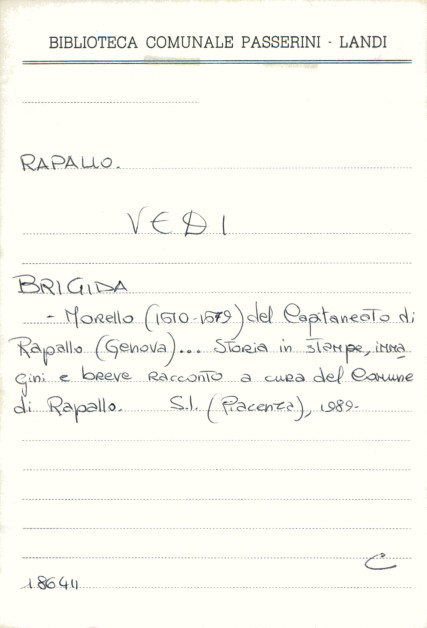 BIBLIOTECA COMUNALE PASSERINI - LANDI
RAPALLO.
VEDI
BRIGIDA
- Morello (1610-1679) del Capitaneato di
Rapallo (Genova)... Storia in stampe, imma
gini e breve racconto a cura del Comune
di Rapallo. S.l. (Piacenza), 1989.
C
186411